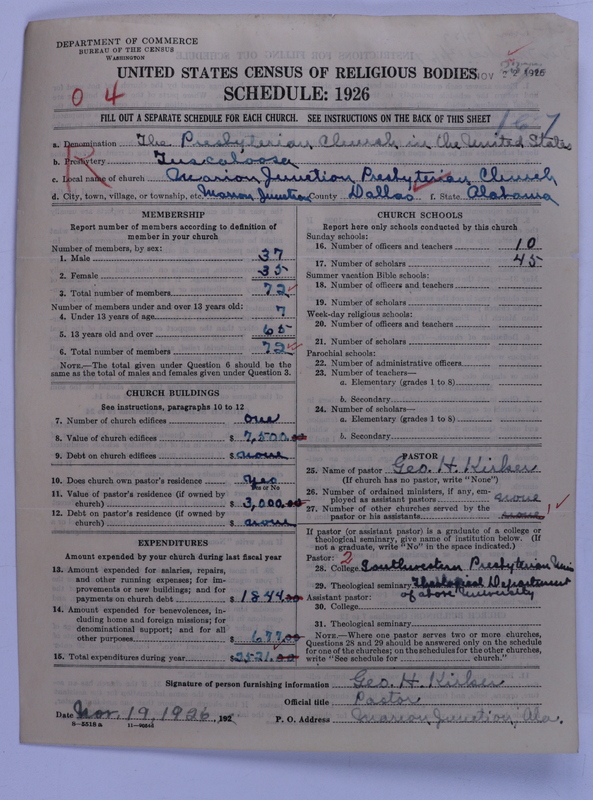 DEPARTMENT OF COMMERCE
BUREAU OF THE CENSUS
WASHINGTON
UNITED STATES CENSUS OF RELIGIOUS BODIES
NOV 22 1926
SCHEDULE: 1926
0 4
FILL OUT A SEPARATE SCHEDULE FOR EACH CHURCH. SEE INSTRUCTIONS ON THE BACK OF THIS SHEET
167
R
a. Denomination The Presbyterian Church in the United States
b. Presbytery Tuscaloosa
c. Local name of church Marion Junction Presbyterian Church
d. City, town, village, or township, etc. Marion Junction County Dallas f. State Alabama
MEMBERSHIP
Report number of members according to definition of
member in your church
Number of members, by sex:
1. Male 37
2. Female 35
3. Total number of members 72
Number of members under and over 13 years old:
4. Under 13 years of age 7
5. 13 years old and over 65
6. Total number of members 72
NOTE.—The total given under Question 6 should be the
same as the total of males and females given under Question 3.
CHURCH BUILDINGS
See instructions, paragraphs 10 to 12
7. Number of church edifices one
8. Value of church edifices $ 7,500.00
9. Debt on church edifices $ none
10. Does church own pastor's residence? Yes
Yes or No
11. Value of pastor's residence (if owned by
church) $ 3,000.00
12. Debt on pastor's residence (if owned by
church) $ none
EXPENDITURES
Amount expended by your church during last fiscal year
13. Amount expended for salaries, repairs,
and other running expenses; for im-
provements or new buildings; and for
payments on church debt $ 1844.00
14. Amount expended for benevolences, in-
cluding home and foreign missions; for
denominational support; and for all
other purposes $ 677.00
15. Total expenditures during year $2521.00
CHURCH SCHOOLS
Report here only schools conducted by this church
Sunday schools:
16. Number of officers and teachers 10
17. Number of scholars 45
Summer vacation Bible schools:
18. Number of officers and teachers
19. Number of scholars
Week-day religious schools:
20. Number of officers and teachers
21. Number of scholars
Parochial schools:
22. Number of administrative officers
23. Number of teachers—
a. Elementary (grades 1 to 8)
b. Secondary
24. Number of scholars—
a. Elementary (grades 1 to 8)
b. Secondary
PASTOR
25. Name of pastor Geo. H. Kirker
(If church has no pastor, write "None")
26. Number of ordained ministers, if any, em-
ployed as assistant pastors none
27. Number of other churches served by the
pastor or his assistants none 1
If pastor (or assistant pastor) is a graduate of a college or
theological seminary, give name of institution below. (If
not a graduate, write "No" in the space indicated.)
Pastor: 2
28. College Southwestern Presbyterian Univ
29. Theological seminary Theological Department
Assistant pastor: of above University
30. College
31. Theological seminary
NOTE.—Where one pastor serves two or more churches,
Questions 28 and 29 should be answered only on the schedule
for one of the churches; on the schedules for the other churches,
write "See schedule for church."
Signature of person furnishing information Geo. H. Kirker
Official title Pastor
Date Nov. 19, 1926, 192 P. O. Address Marion Junction, Ala.
8-5518 a